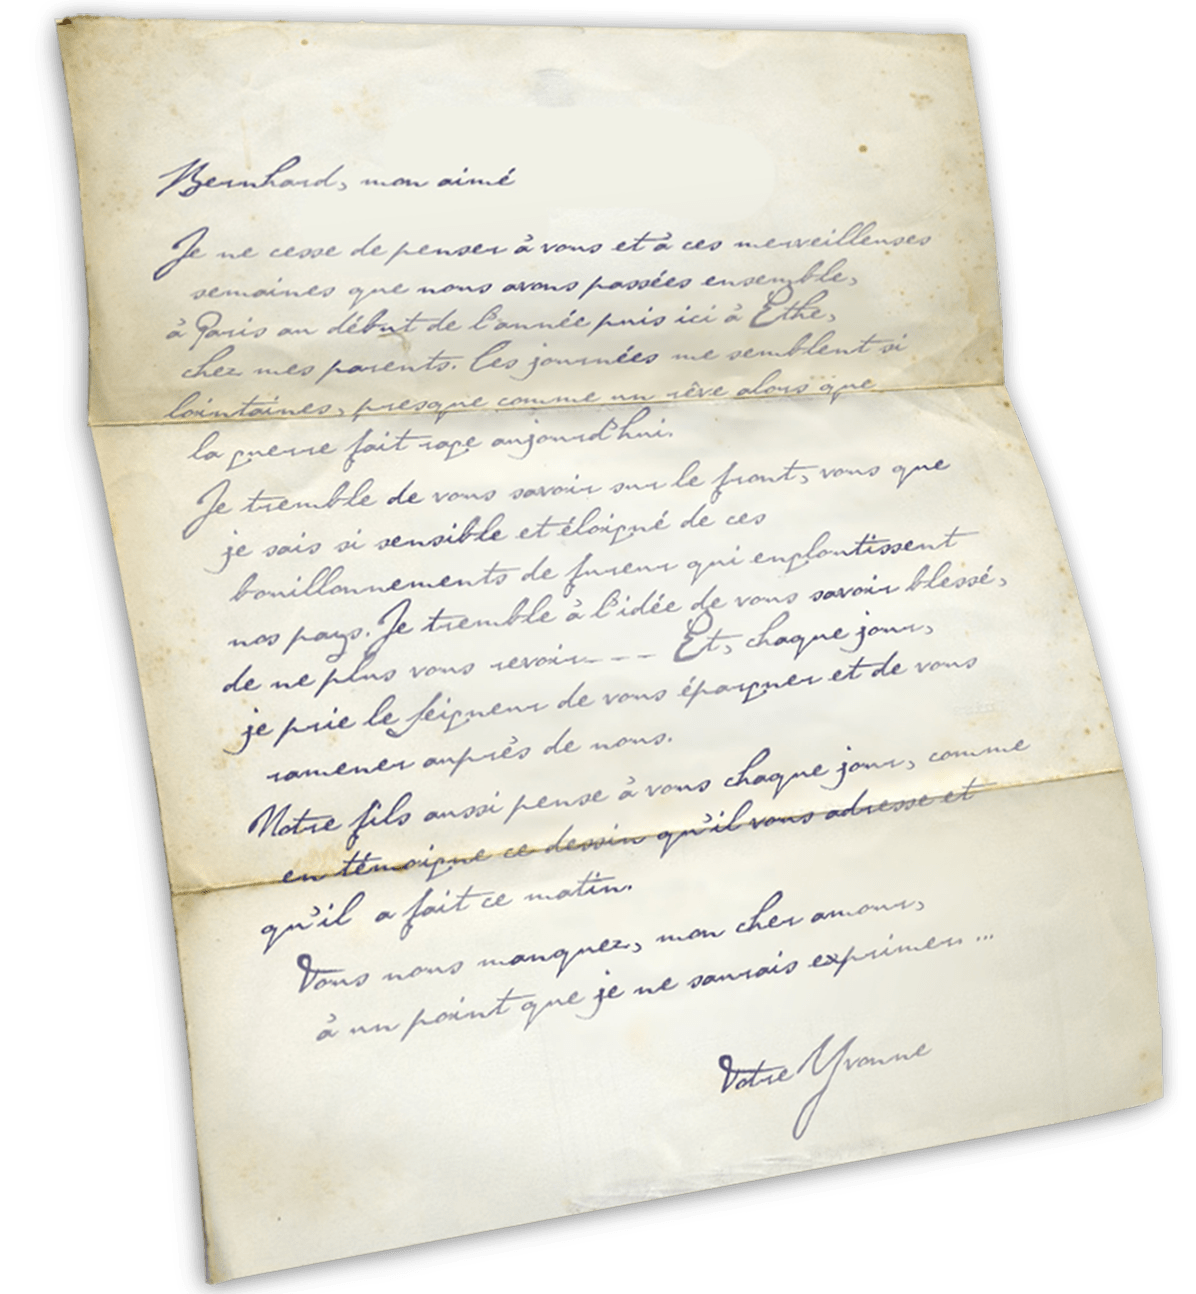 Bernhard, mon aimé
Je ne cesse de penser à vous et à ces merveilleuses
semaines que nous avons passées ensemble,
à Paris au début de l'année puis ici à Ethe,
chez mes parents. Ces journées me semblent si
lointaines, presque comme un rêve alors que
la guerre fait rage aujourd'hui.
Je tremble de vous savoir sur le front, vous que
je sais si sensible et éloigné de ces
bouillonnements de fureur qui engloutissent
nos pays. Je tremble à l'idée de vous savoir blessé,
de ne plus vous revoir--- Et, chaque jour,
je prie le Seigneur de vous épargner et de vous
ramener auprès de nous.
Notre fils aussi pense à vous chaque jour, comme
en témoigne ce dessin qu'il vous adresse et
qu'il a fait ce matin.
Vous nous manquez, mon cher amour,
à un point que je ne saurais exprimer ...
Votre Yvonne